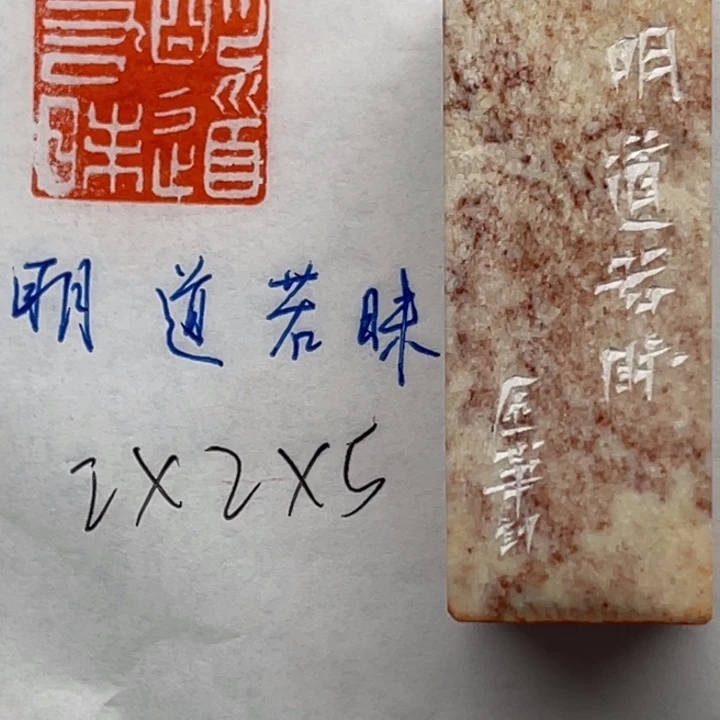 明道
若昧
明道若昧
2X2X5
明道若昧